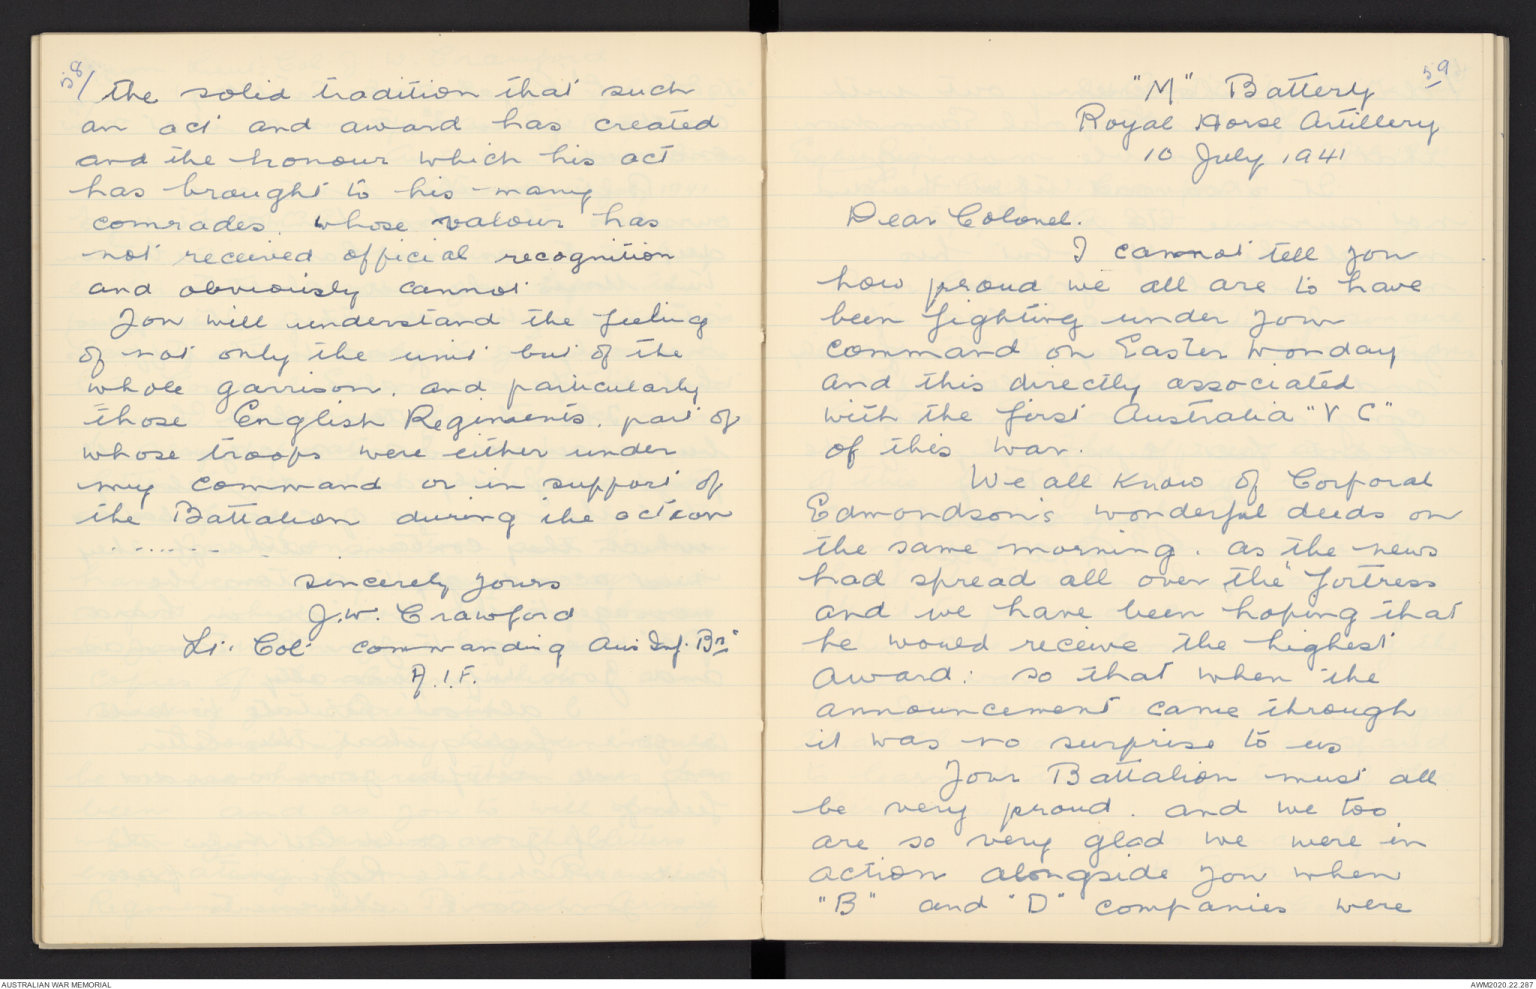 58/ the solid tradition that such
an act and award has created
and the honour which his act
has brought to his many
comrades. whose valour has
not received official recognition
and obviously cannot
You will understand the feeling
of not only the unit but of the
whole garrison. and particularly
those English Regiments. part of
whose troops were either under
my command or in support of
the Battalion during the action
. . . . . . . . .
sincerely yours
J.W. Crawford
Lt. Col. commanding Aus Inf. Bn
A.I.F.
59
"M" Battery
Royal Horse Artillery
10 July 1941
Dear Colonel.
I cannot tell you
how proud we all are to have
been fighting under your
command on Easter Monday
and this directly associated
with the first Australia "V C"
of this war.
We all know of Corporal
Edmondson's wonderful deeds on
the same morning. as the news
had spread all over the fortress
and we have been hoping that
he would receive the highest
award: so that when the
announcement came through
it was no surprise to us
Your Battalion must all
be very proud. and we too
are so very glad we were in
action alongside you when
"B" and "D" companies were
AUSTRALIAN WAR MEMORIAL
AWM2020.22.287